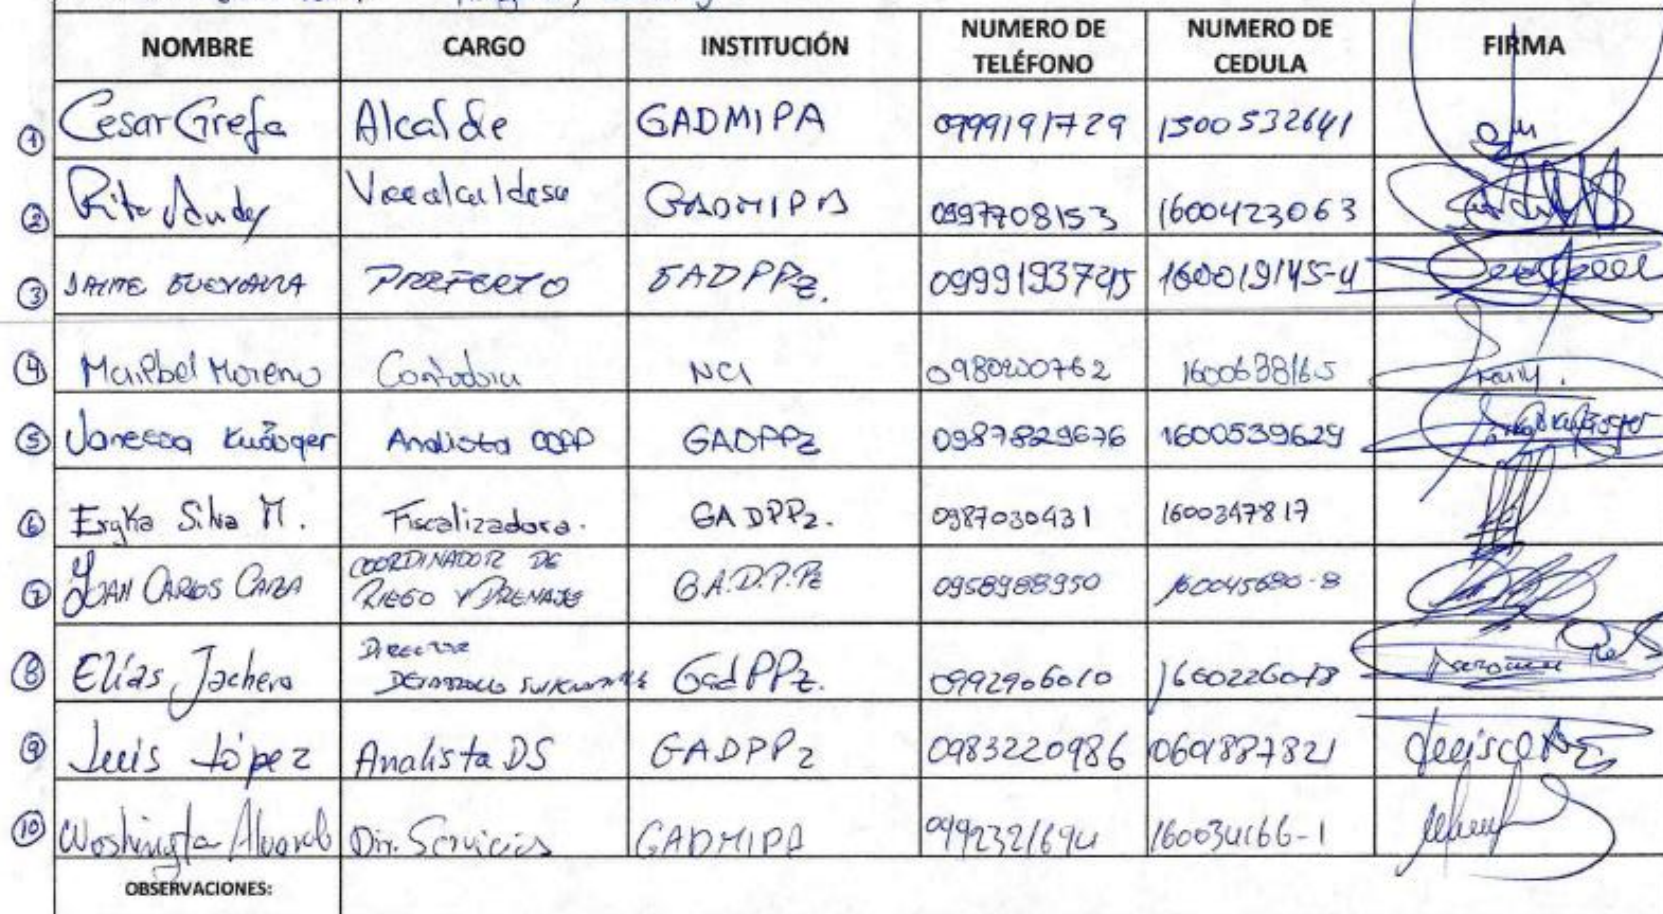 NOMBRE CARGO INSTITUCIÓN NUMERO DE TELÉFONO NUMERO DE CEDULA FIRMA
1 Cesar Grefa Alcalde GADMIPA 0999191729 1500532641
2 Rita Andy Vicealcaldesa GADMIPA 0997708153 1600423063
3 JAIME GUEVARA PREFECTO GADPPz. 0999193745 160019145-4
4 Maribel Moreno NCI 0980200762 1600638165
5 Vanessa Analista GADPPz 0987829676 1600539629
6 Eryka Silva M. Fiscalizadora. GADPPz. 0987030431 1600347817
7 JUAN CARLOS COORDINADOR DE RIEGO Y DRENAJE G.A.D.P.Pz 0958988950 160045680-8
8 Elías Jachero DIRECTOR DESARROLLO SUSTENTABLE GadPPz. 0992906010
9 Luis López Analista DS GADPPz 0983220986 0601887821
10 Washington Dir. Servicios GADMIPA 0992321694 160034166-1
OBSERVACIONES: